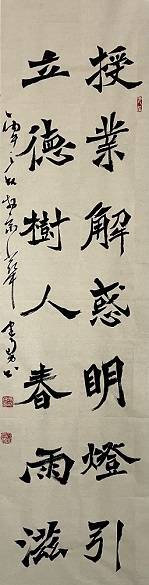 授業解惑明燈引
立德樹人春雨滋